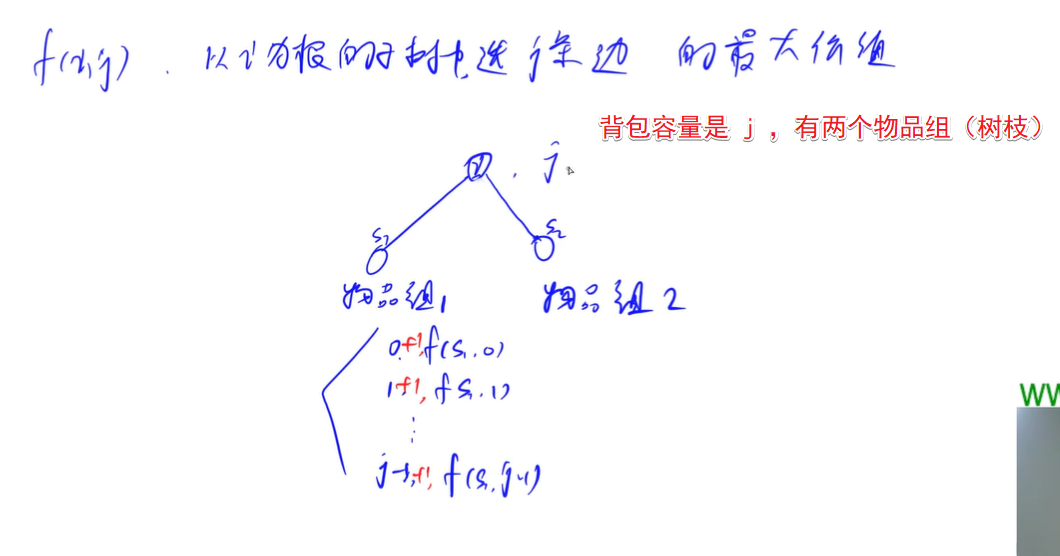 f(i,j). 以i为根的子树中选j条边 的最大价值
背包容量是 j ，有两个物品组（树枝）
i . j
S1 S2
物品组1 物品组2
0+1, f(S1, 0)
1+1, f(S1, 1)
⋮
j-1+1, f(S1, j-1)
W